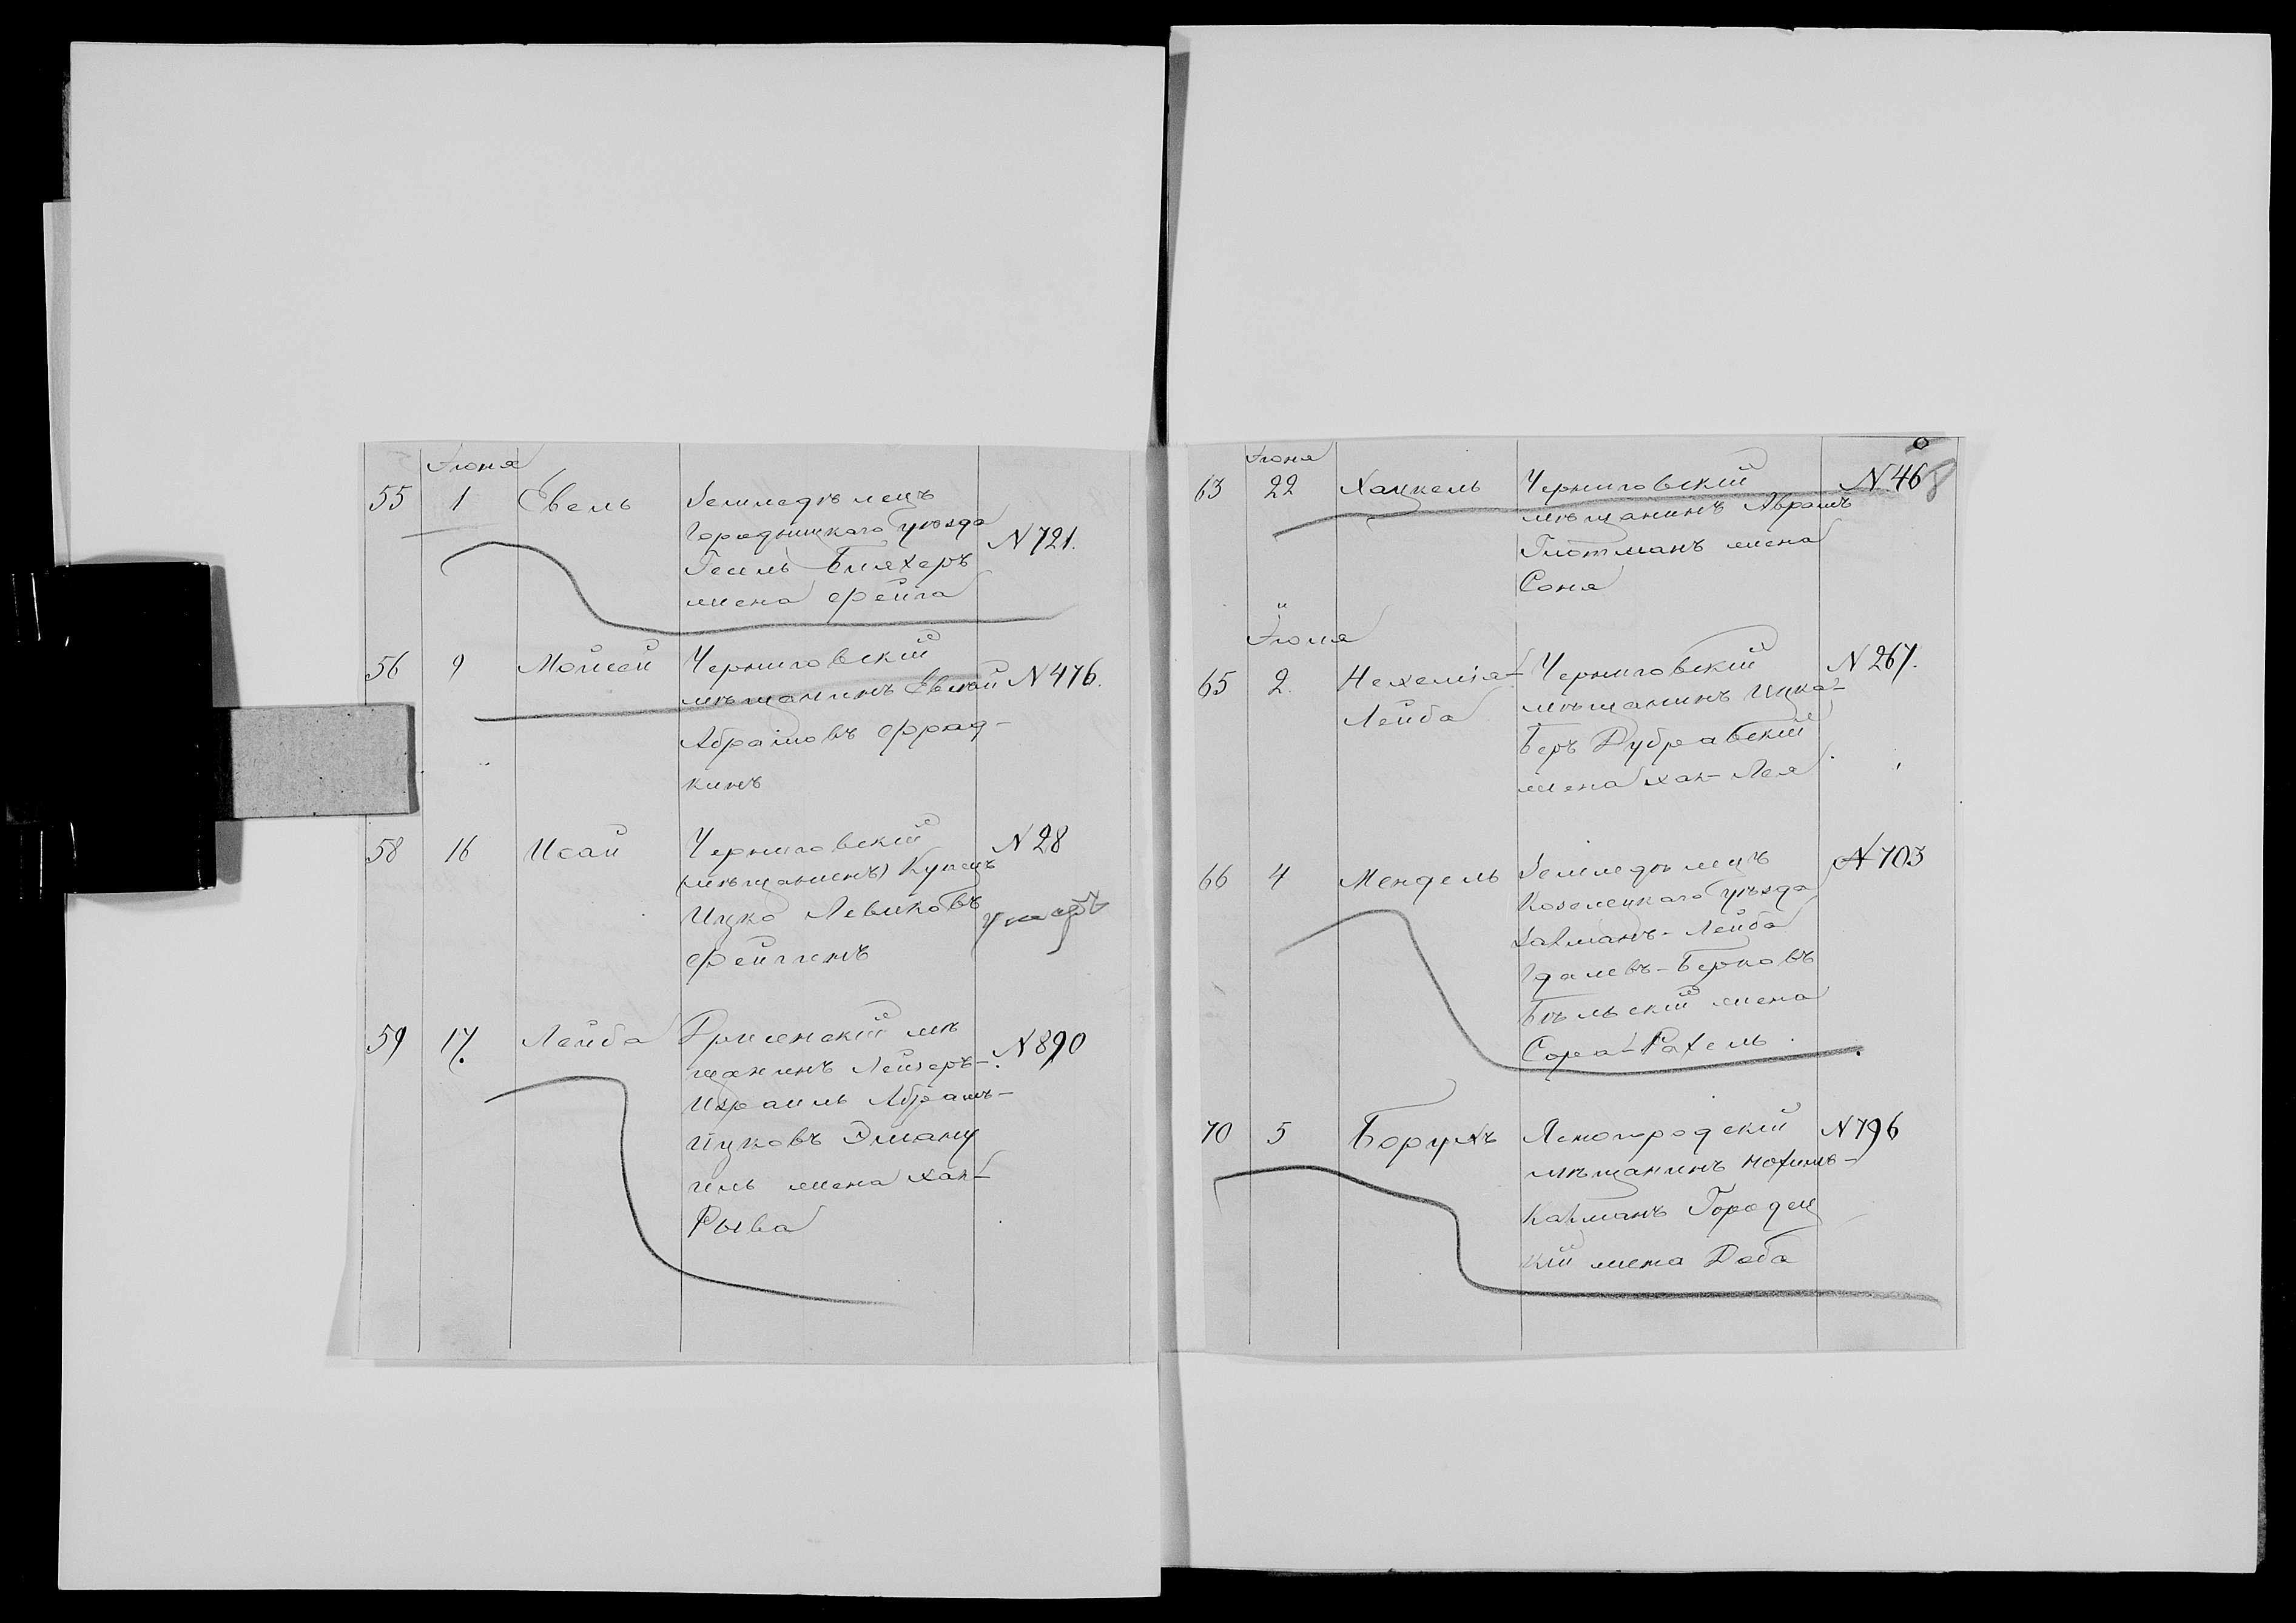 Іюня
55 1 Евель Земледѣлецъ
Городницкаго уѣзда
N 721.
Гесиль Бляхеръ
жена Фейга
56 9 Мойсей Черниговскій
мѣщанинъ Евный N 476.
Абрамовъ Фрад-
кинъ
58 16 Исай Черниговскій N 28
(мѣщанинъ) Купецъ
Ицко Левиковъ умеръ
Фейгинъ
59 17. Лейба Дрисенскій мѣ
щанинъ Лейзеръ- N 890
Израиль Абрамъ-
Ицковъ Эману
иль жена Хая-
Рыва
Іюня
63 22 Хацкель Черниговскій N 468
мѣщанинъ Абрамъ
Глотманъ жена
Соня
"
Іюля
65 2. Нехемія- Черниговскій N 267.
Лейба мѣщанинъ Ицка-
Беръ Дубравскій
жена Хая-Лея
66 4 Мендель Земледѣлецъ N 703
Козелецкаго уѣзда
Залманъ-Лейба
Гдалевъ-Берковъ
Бѣльскій жена
Сора-Рахель.
70 5 Борухъ Ясногородскій N 796
мѣщанинъ Нохимъ-
Калманъ Городец
кій жена Доба